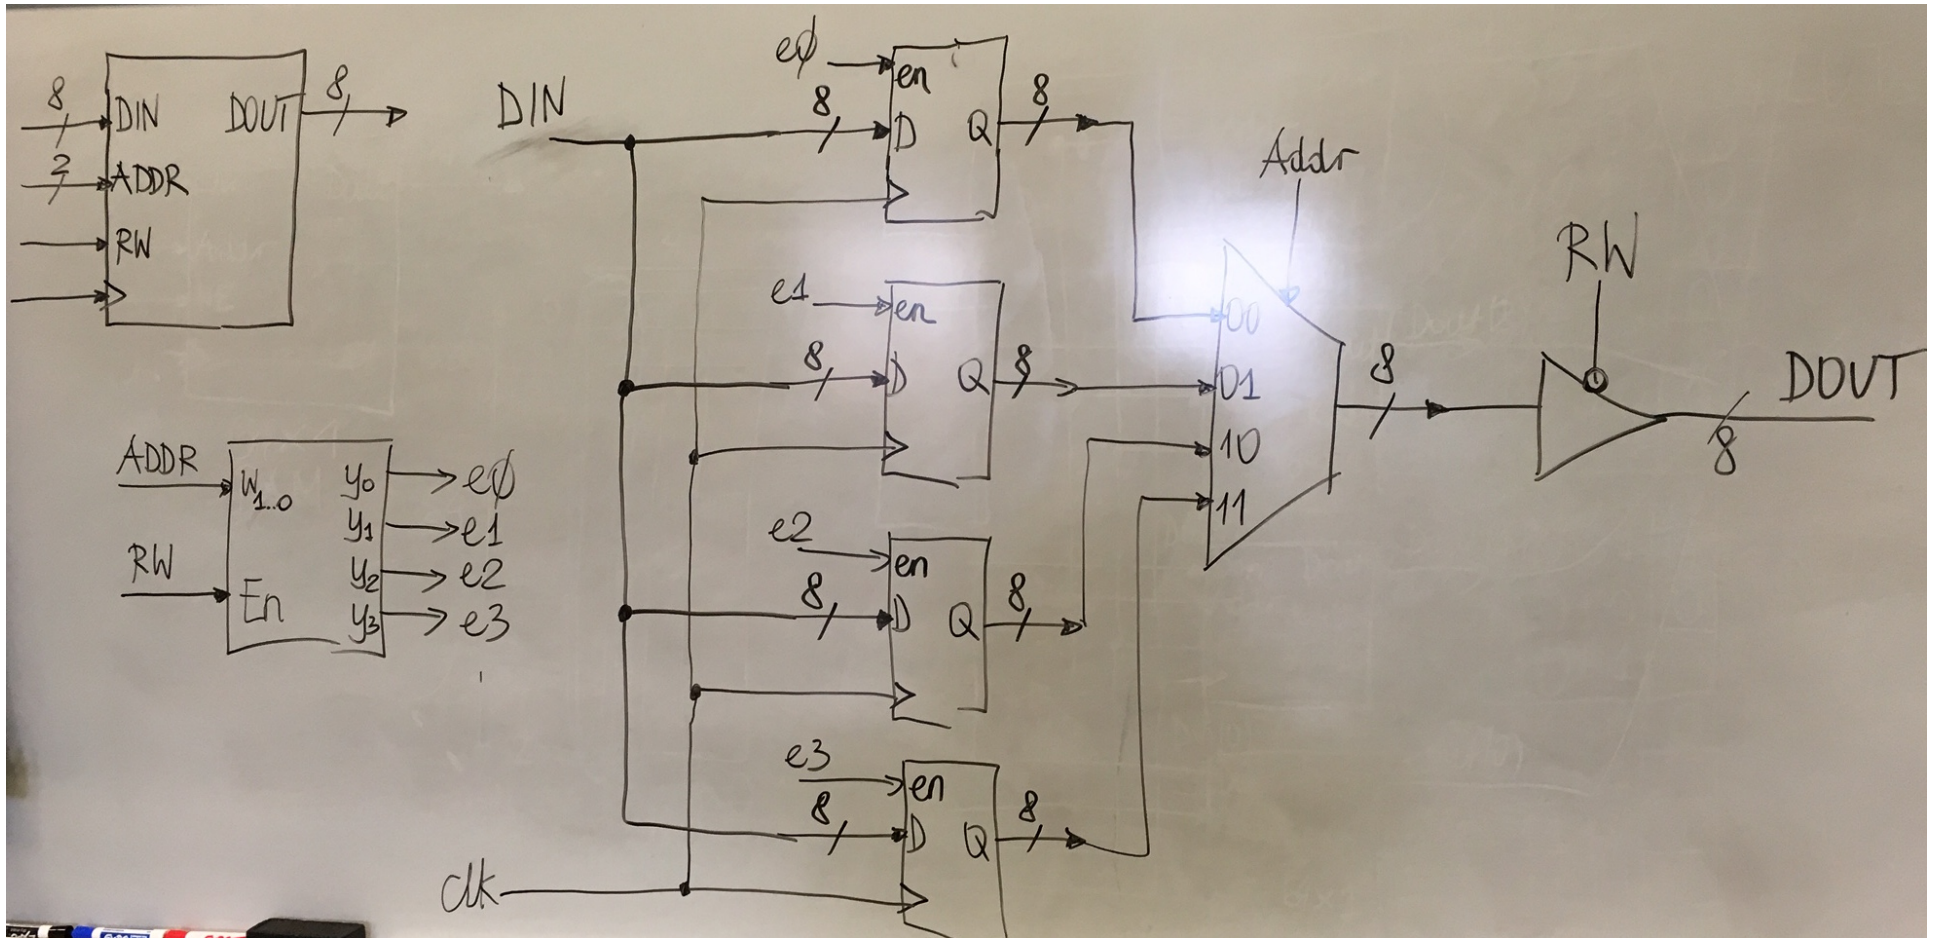 8
DIN DOUT 8
2
ADDR
RW
ADDR
W1..0 y0 e0
y1 e1
RW
y2 e2
En y3 e3
DIN
e0
en
8 D Q 8
e1
en
8 D Q 8
e2
en
8 D Q 8
e3
en
8 D Q 8
clk
Addr
00
01
10
11
8
RW
DOUT
8